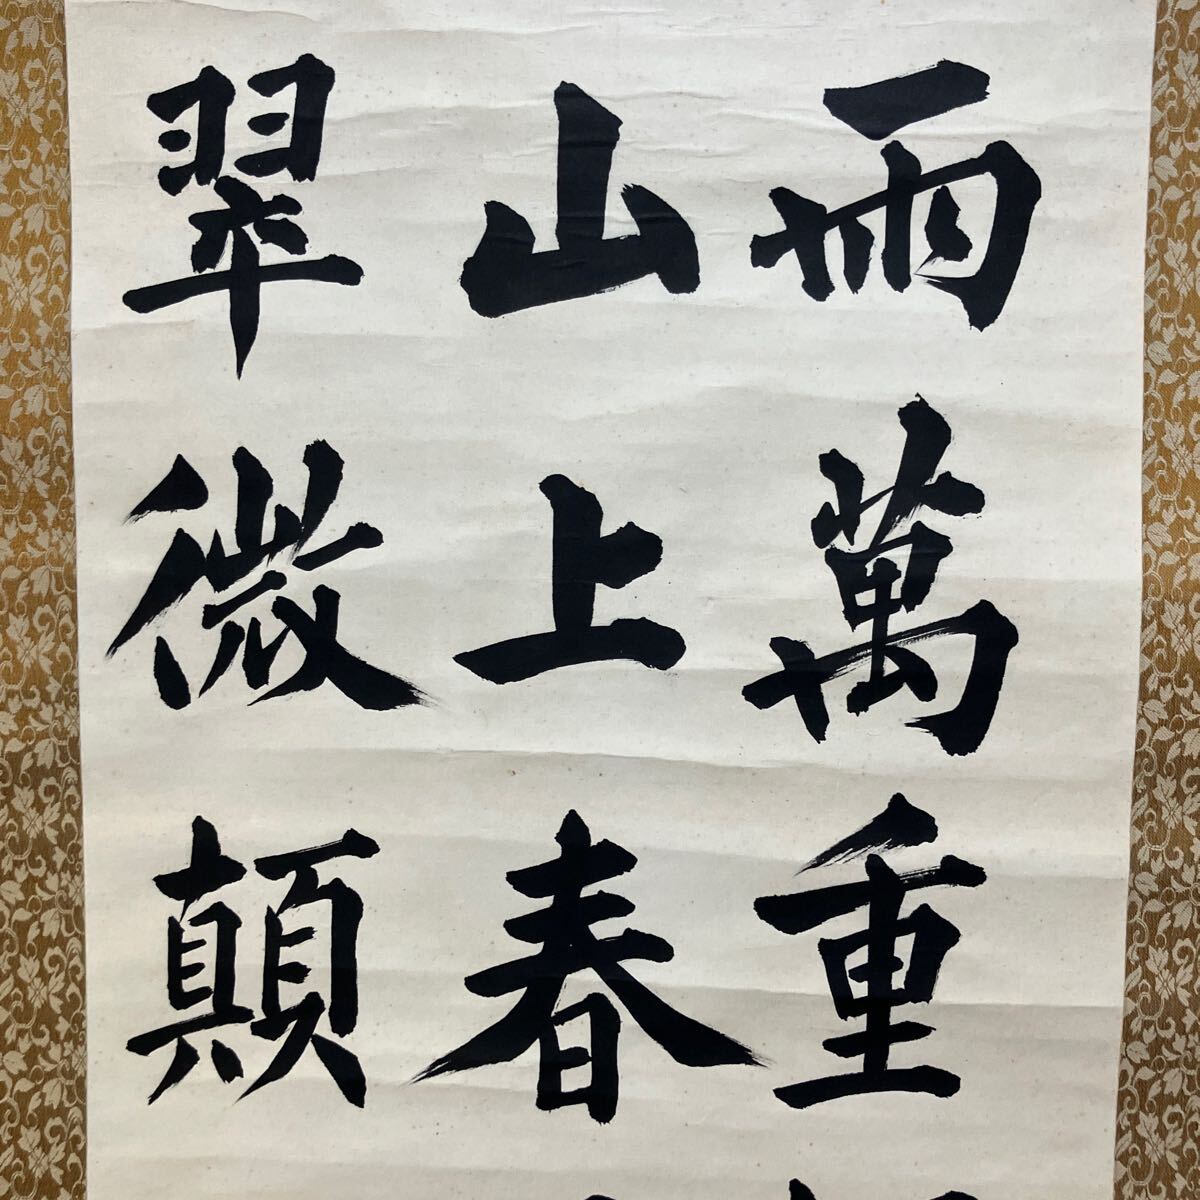 雨萬重
山上春
翠微顛